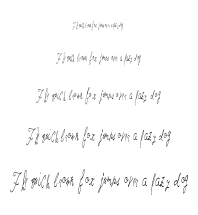 The quick brown fox jumps over a lazy dog
The quick brown fox jumps over a lazy dog
The quick brown fox jumps over a lazy dog
The quick brown fox jumps over a lazy dog
The quick brown fox jumps over a lazy dog